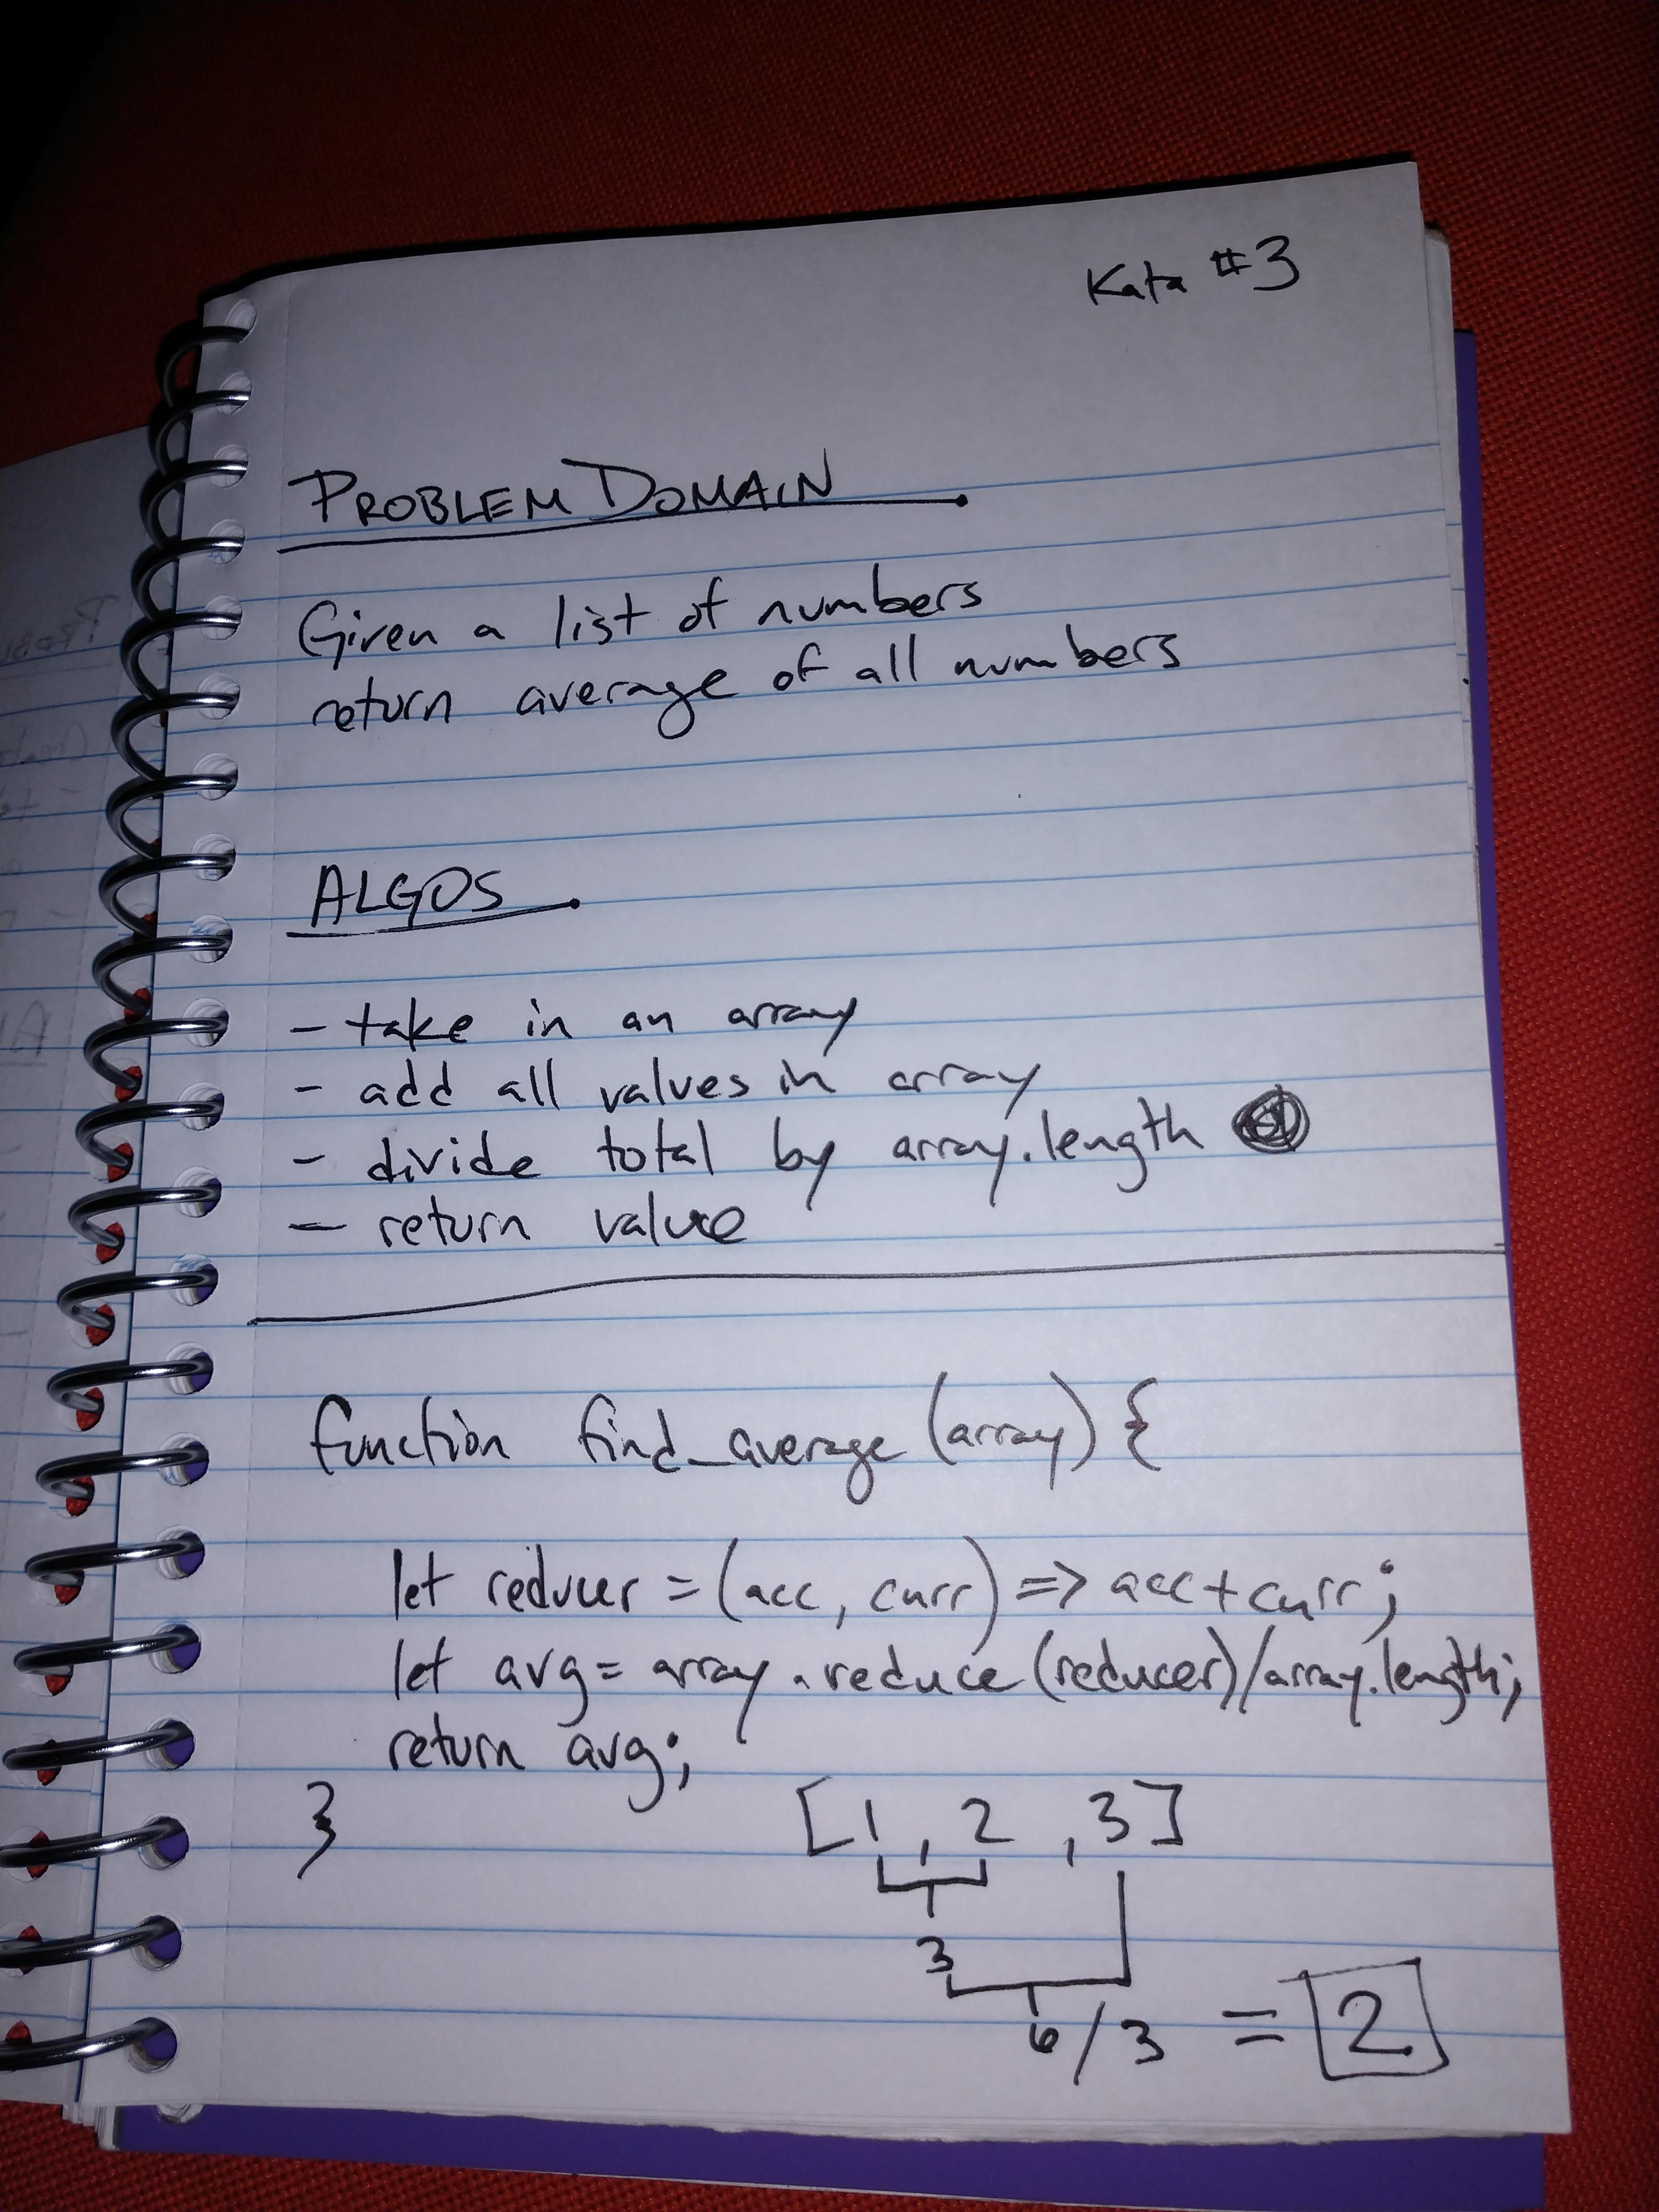 Kata #3
PROBLEM DOMAIN
Given a list of numbers
return average of all numbers
ALGOS
- take in an array
- add all values in array
- divide total by array.length
- return value
function find_average (array) {
let reducer = (acc, curr) => acc + curr;
let avg = array.reduce (reducer)/array.length;
return avg;
}
[1, 2, 3]
3
6/3 = 2